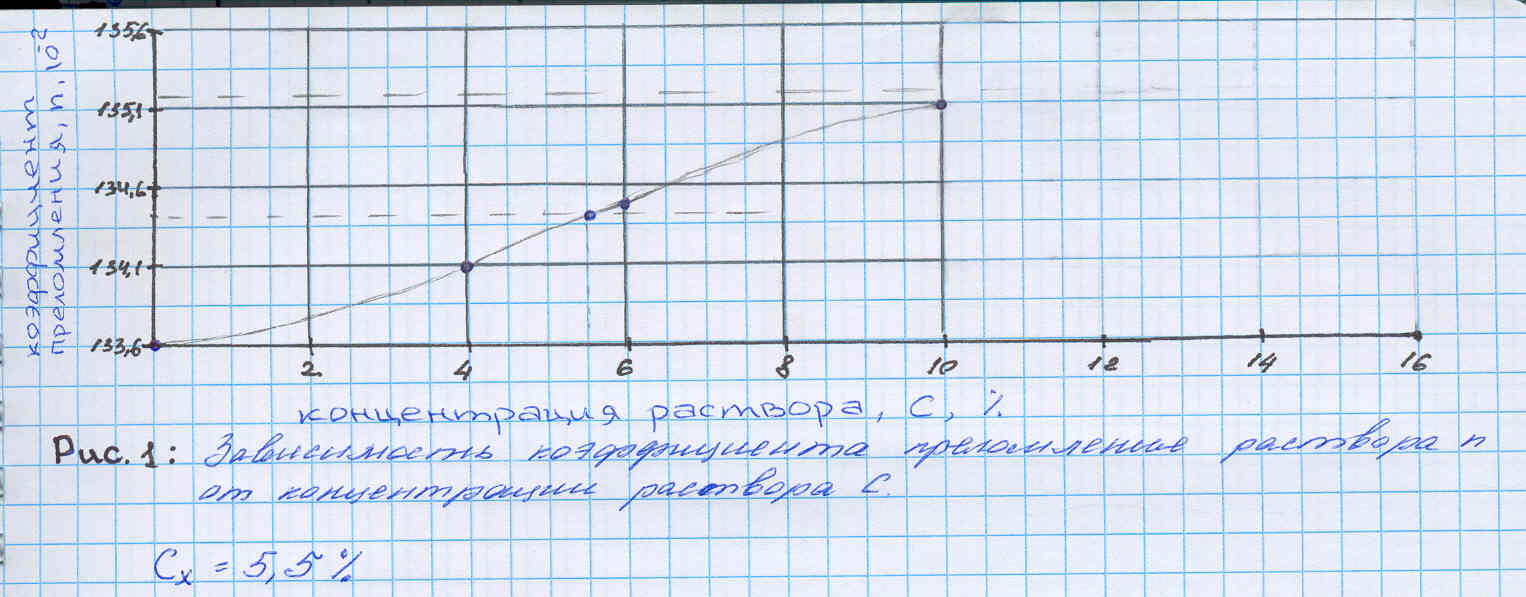 коэффициент
преломления, n, 10⁻²
135,6
135,1
134,6
134,1
133,6
2 4 6 8 10 12 14 16
концентрация раствора, С, %
Рис. 1: Зависимость коэффициента преломление раствора n
от концентрации раствора С.
Cₓ = 5,5 %